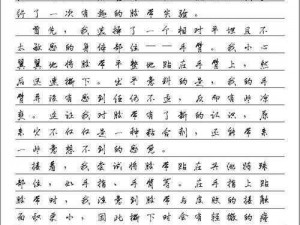 行了一次有趣的胶带实验。
首先，我选择了一个相对平坦且不
太敏感的身体部位——手臂。我小心
翼翼地将胶带平整地贴在手臂上，然
后迅速撕下。出乎意料的是，我的手
臂并没有感到任何不适，反而有些凉
爽。这让我对胶带有了新的认识，原
来它不仅仅是一种粘合剂，还能带来
一些意想不到的感觉。
接着，我尝试将胶带贴在其他特殊
部位，如手指、手背等。在手指上贴
胶带时，我注意到胶带与皮肤的接触
面积更小，因此撕下时会有轻微的疼